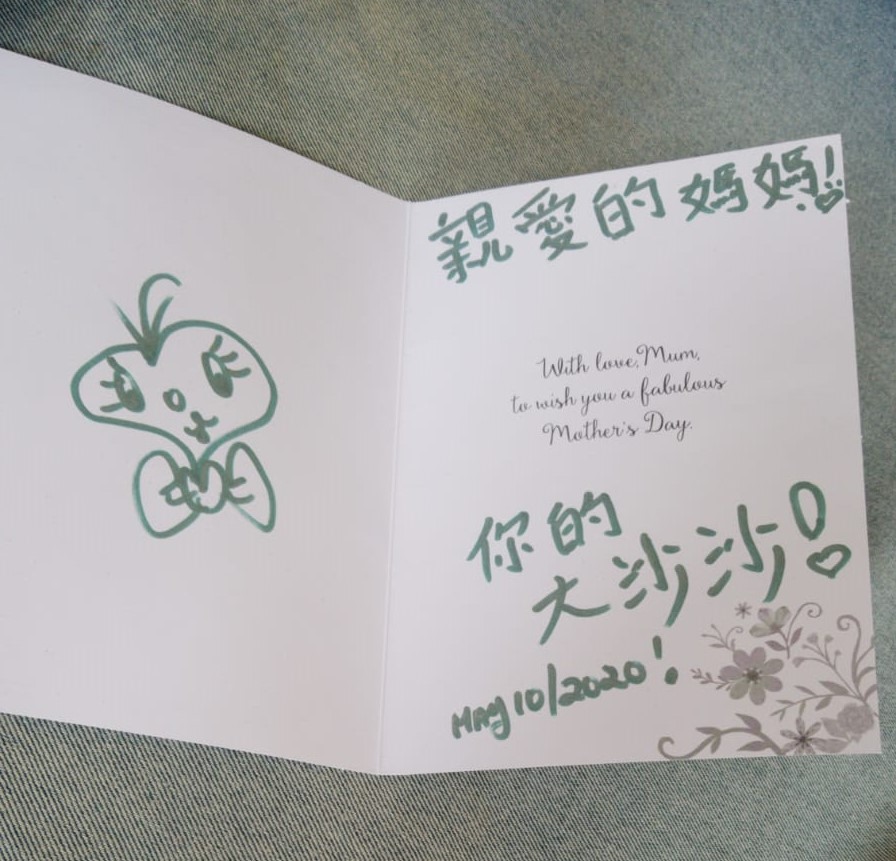 親愛的媽媽!
With love, Mum,
to wish you a fabulous
Mother's Day.
你的
大沙沙!
MAy 10/2020!